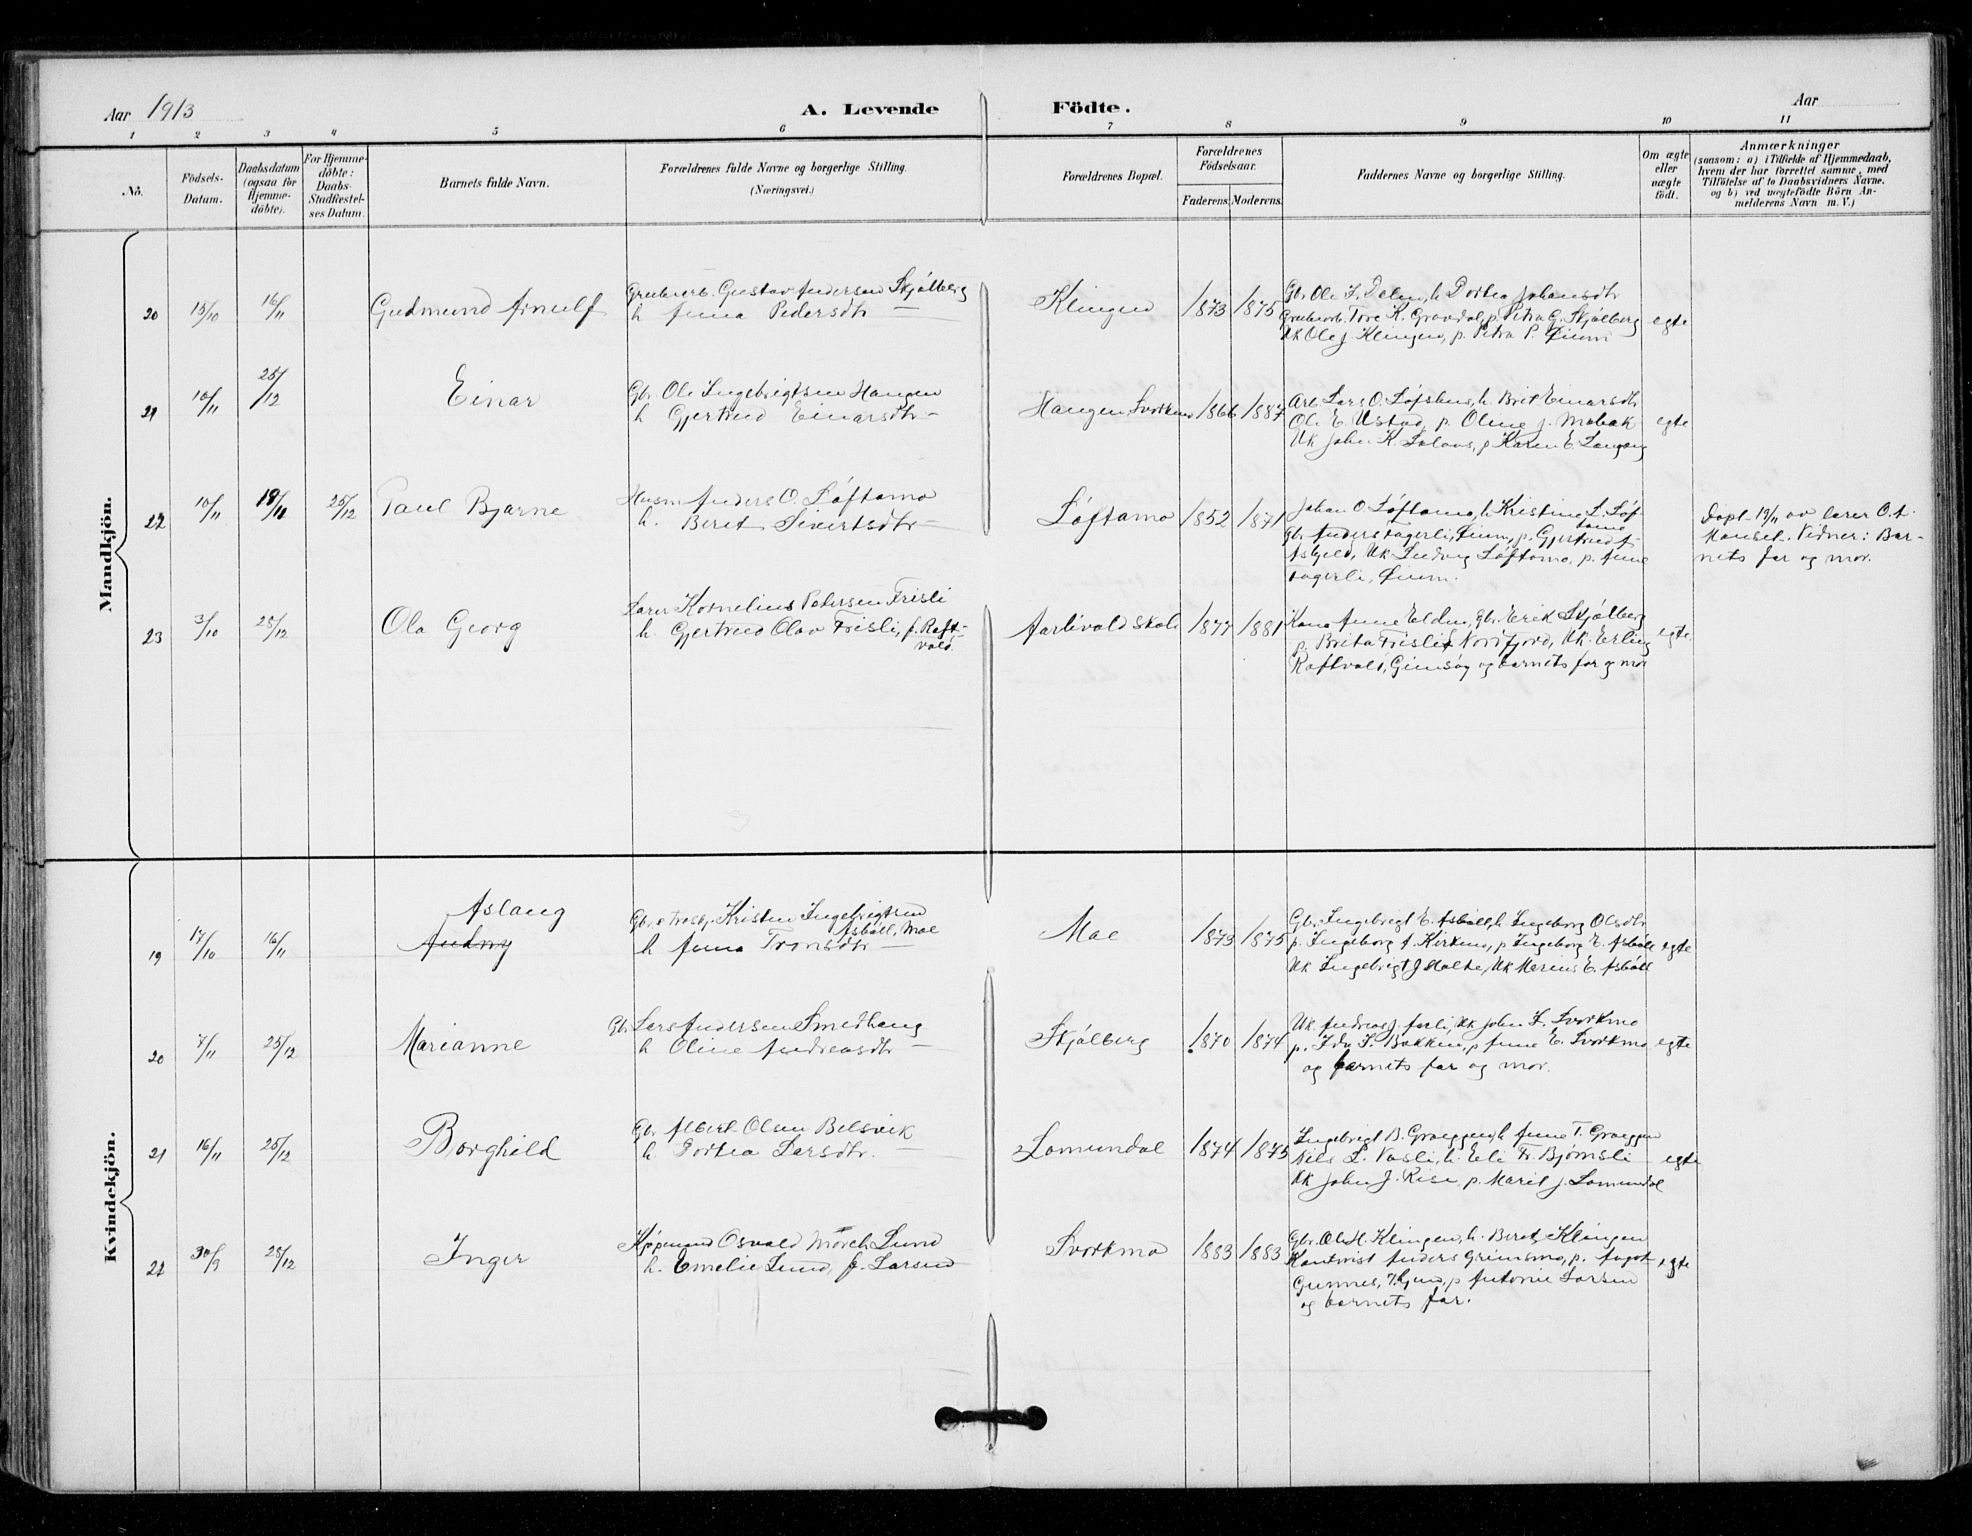 Aar 1913
A. Levende Födte.
Aar
1 2 3 4 5 6 7 8 9 10 11
No.
Födsels-Datum.
Daabsdatum (ogsaa for Hjemme-döbte).
For Hjemme-döbte: Daabs-Stadfæstel-ses Datum.
Barnets fulde Navn.
Forældrenes fulde Navne og borgerlige Stilling.
(Næringsvei.)
Forældrenes Bopæl.
Forældrenes Födselsaar.
Faderens. Moderens.
Faddernes Navne og borgerlige Stilling.
Om ægte eller uægte födt.
Anmærkninger
(saasom: a) i Tilfælde af Hjemmedaab,
hvem der har forrettet samme, med
Tilföielse af to Daabsvidners Navne.
og b) ved uægtefödte Börn An-
melderens Navn m. V.)
Mandkjön.
20 15/10 16/11 Gudmund Arnulf
Grubearb. Gustav Andersen Skjølberg
h Anna Pedersdtr
Klingen 1873 1875
Gbr. Ole I. Dalen, h Dortea Johansdtr
Grubearb. Tore K. Grovdal, p. Petra G. Skjølberg
Uk Ole J. Klingen, p. Petra P. Øium
egte
21 10/11 25/12 Einar
Gbr. Ole Ingebrigtsen Haugen
h Gjertrud Einarsdtr
Haugen, Svorkmo 1866 1887
Arb Lars O. Løfshus, h. Brit Einarsdtr
Ole E. Ustad, p. Oline J. Mobak
Uk John K. Solaas, p Karen E.
egte
22 10/11 19/11 25/12 Paul Bjarne
Husm Anders O. Løftamo
h. Beret Sivertsdtr
Løftamo 1852 1871
Johan O Løftamo, h Kristine L. Løf-
tamo
Gbr. Anders Fagerli, Øium, p. Gjertrud A.
Uk Ludvig Løftamo, p. Anne
Fagerli, Øium.
Døpt 19/11 av lærer O. A.
Monset. Vidner: Bar-
nets far og mor.
23 3/10 25/12 Ola Georg
Lærer Kornelius Petersen Frisli
h. Gjertrud Olav Frisli, f. Raft-
vold.
Aarlivold skole 1877 1881
Kona Anne Elden, Gbr. Erik Skjølberg
p. Brita Frisli, Nordfjord, Uk. Erling
Raftvold, Gimsøy og barnets far og mor
egte
Kvindekjön.
19 17/10 16/11 Aslaug
Audny
Gbr. Kristen Ingebrigtsen
Asbøll, Moe
h Anna Tronsdtr
Moe 1873 1875
Gbr. Ingebrigt E. Asbøll, h Ingeborg Olsdtr
p. Ingeborg A. Kirkmo, p Ingeborg E. Asbøll
Uk Ingebrigt J Holte, Uk Marius E. Asbøll
egte
20 7/11 25/12 Marianne
Gbr. Lars Andersen Smedhaug
h Oline Andreasdtr
Skjølberg 1870 1874
Uk. Andreas J. Aarli, Uk John L. Svorkmo
p. Ida I. Bakken, p Anne E. Svorkmo
og barnets far og mor.
egte
21 16/11 25/12 Borghild
Gbr Albert Olsen Belsvik
h. Dortea Larsdtr.
Lomundal 1874 1875
Ingebrigt B. Græggen, h Anne T. Græggen
Nils L. Vasli, h. Eli Fr. Bjørnsli
Uk John J. Rise, p. Marit J. Lomundal
egte
22 30/9 28/12 Inger
Kjøpmand Osvald Mörch Lund
h. Emelie Lund, f. Larsen
Svorkmo 1883 1883
Gbr. Ole H. Klingen, h. Beret Klingen
Kontorist Anders Grimsmo, p. Aagot
Gunnes, p Antonie Larsen
og barnets far.
egte